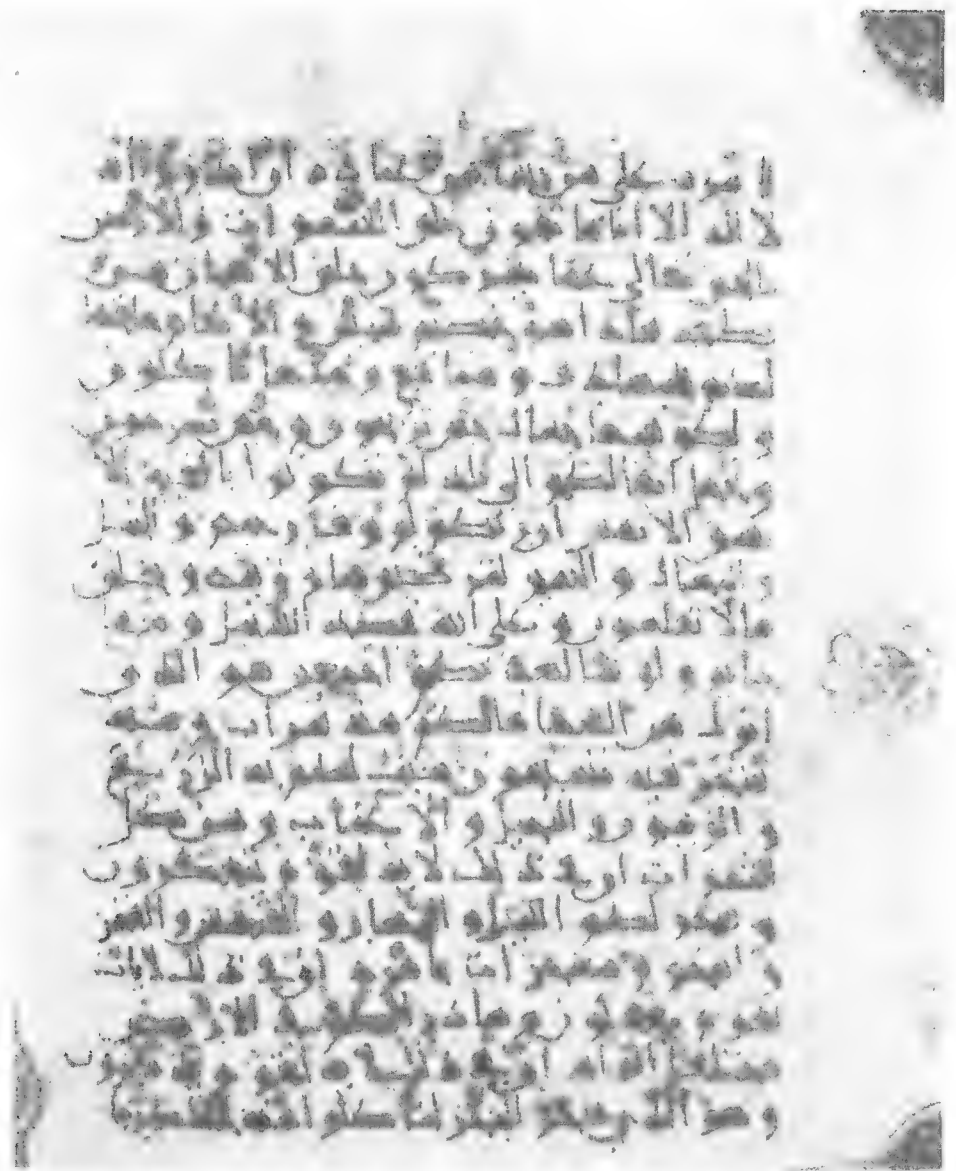 امره على من يشا من عباده ان انذروا انه
لا اله الا انا فاتقون خلق السموات والارض
بالحق تعالى عما يشركون خلق الانسان من
نطفة فاذا هو خصيم مبين والانعام خلقها
لكم فيها دف و منافع ومنها تاكلون
ولكم فيها جمال حين تريحون وحين تسرحون
وتحمل اثقالكم الى بلد لم تكونوا بالغيه الا
بشق الانفس ان ربكم لروف رحيم والخيل
والبغال والحمير لتركبوها وزينة ويخلق
ما لا تعلمون وعلى الله قصد السبيل ومنها
جاير ولو شا لهديكم اجمعين هو الذي
انزل من السما ما لكم منه شراب ومنه
شجر فيه تسيمون ينبت لكم به الزرع
والزيتون والنخيل والاعناب ومن كل
الثمرات ان في ذلك لاية لقوم يتفكرون
وسخر لكم الليل والنهار والشمس والقمر
والنجوم مسخرات بامره ان في ذلك لايات
لقوم يعقلون وما ذرا لكم في الارض
مختلفا الوانه ان في ذلك لاية لقوم يذكرون
وهو الذي سخر البحر لتاكلوا منه لحما